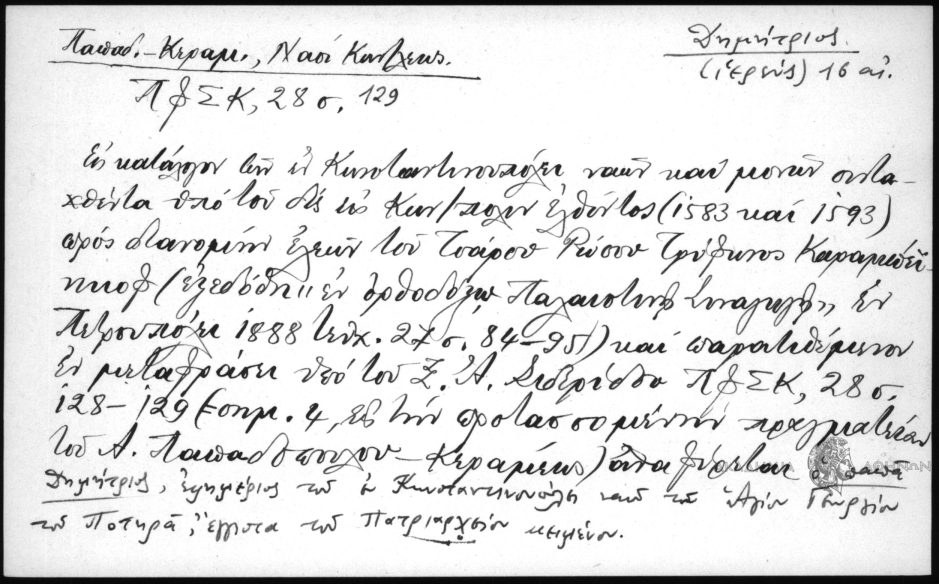 Παπαδ.-Κεραμ., Ναοί Κων/λεως.
Δημήτριος.
(ἱερεύς) 16 αἰ.
ΠΦΣΚ, 28 σ. 129
Εἰς κατάλογον τῶν ἐν Κωνσταντινουπόλει ναῶν καί μονῶν συντα-
χθέντα ὑπό τοῦ δίς εἰς Κων/πολιν ἐλθόντος (1583 καί 1593)
πρός διανομήν ἐλεῶν τοῦ Τσάρου Ρώσου Τρύφωνος Καραμπέϊ-
νικοφ (ἐξεδόθη "ἐν ὀρθοδόξῳ Παλαιστινῇ Συναγωγῇ" ἐν
Πετρουπόλει 1888 τεῦχ. 27 σ. 84-95) καί παρατιθέμενον
ἐν μεταφράσει ὑπό τοῦ Ξ. Ἀ. Σιδερίδου ΠΦΣΚ, 28 σ.
128-129 (σημ. 4, εἰς τήν προτασσομένην πραγματείαν
τοῦ Α. Παπαδοπούλου-Κεραμέως) ἀναφέρεται ὁ παπᾶ
Δημήτριος, ἐφημέριος τοῦ ἐν Κωνσταντινουπόλει ναοῦ τοῦ Ἁγίου Γεωργίου
τοῦ Ποτηρᾶ, ἔγγιστα τοῦ Πατριαρχείου κειμένου.